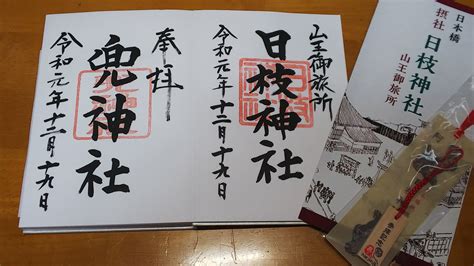 山王御旅所
日枝神社
令和元年十二月十九日
奉拝
兜神社
令和元年十二月十九日
日本橋
摂社
日枝神社
山王御旅所